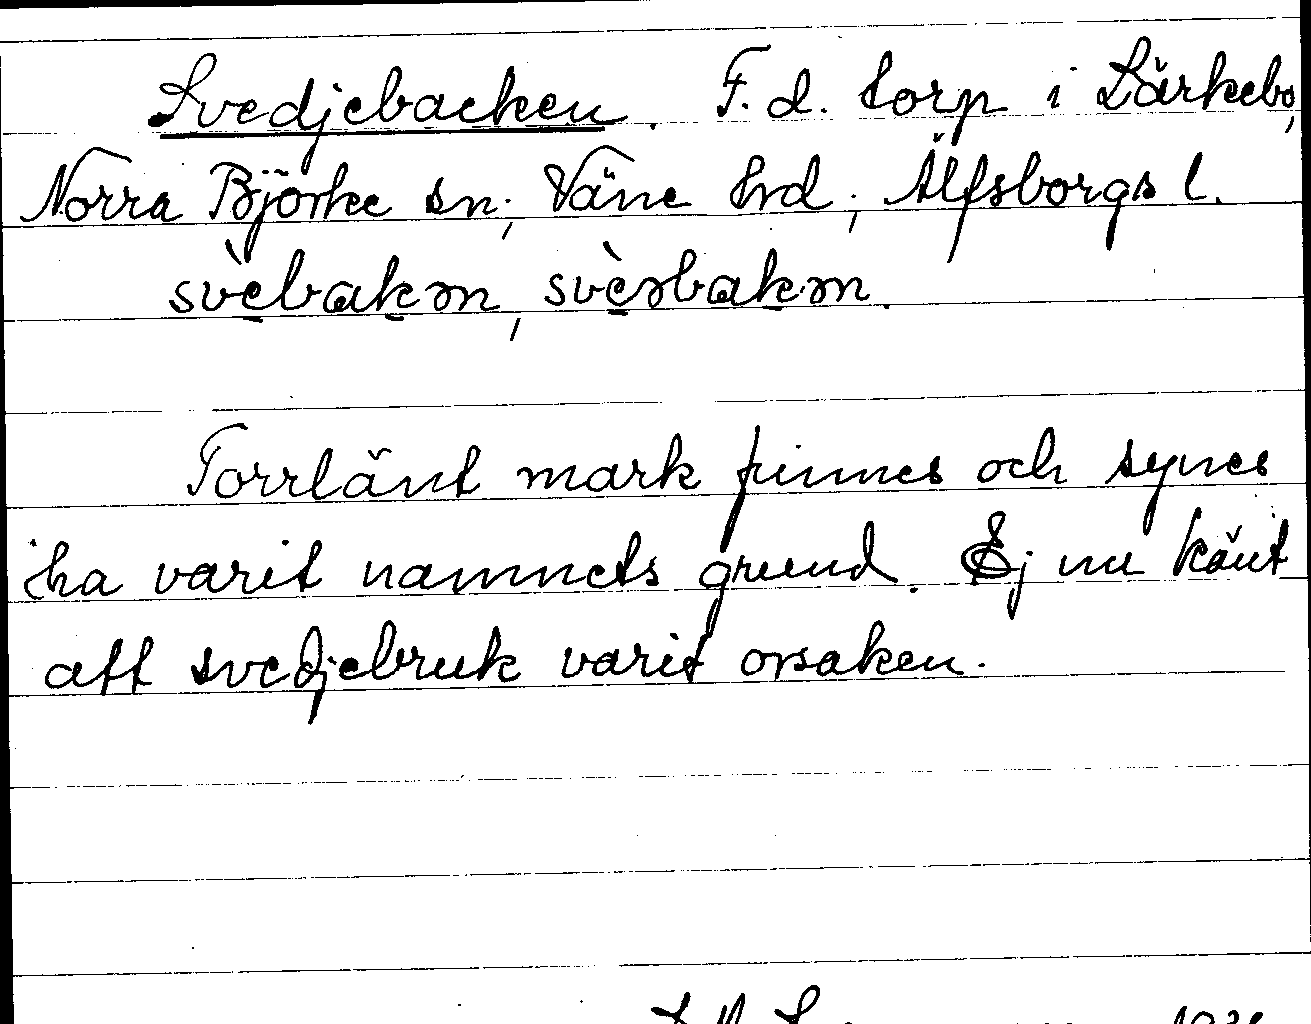 Svedjebacken. F. d. torp i Lärkebo,
Norra Björke sn, Väne hrd, Älfsborgs l.
svèbakɘn, svèɘbakɘn.
Torrlänt mark finnes och synes
ha varit namnets grund. Ej nu känt
att svedjebruk varit orsaken.